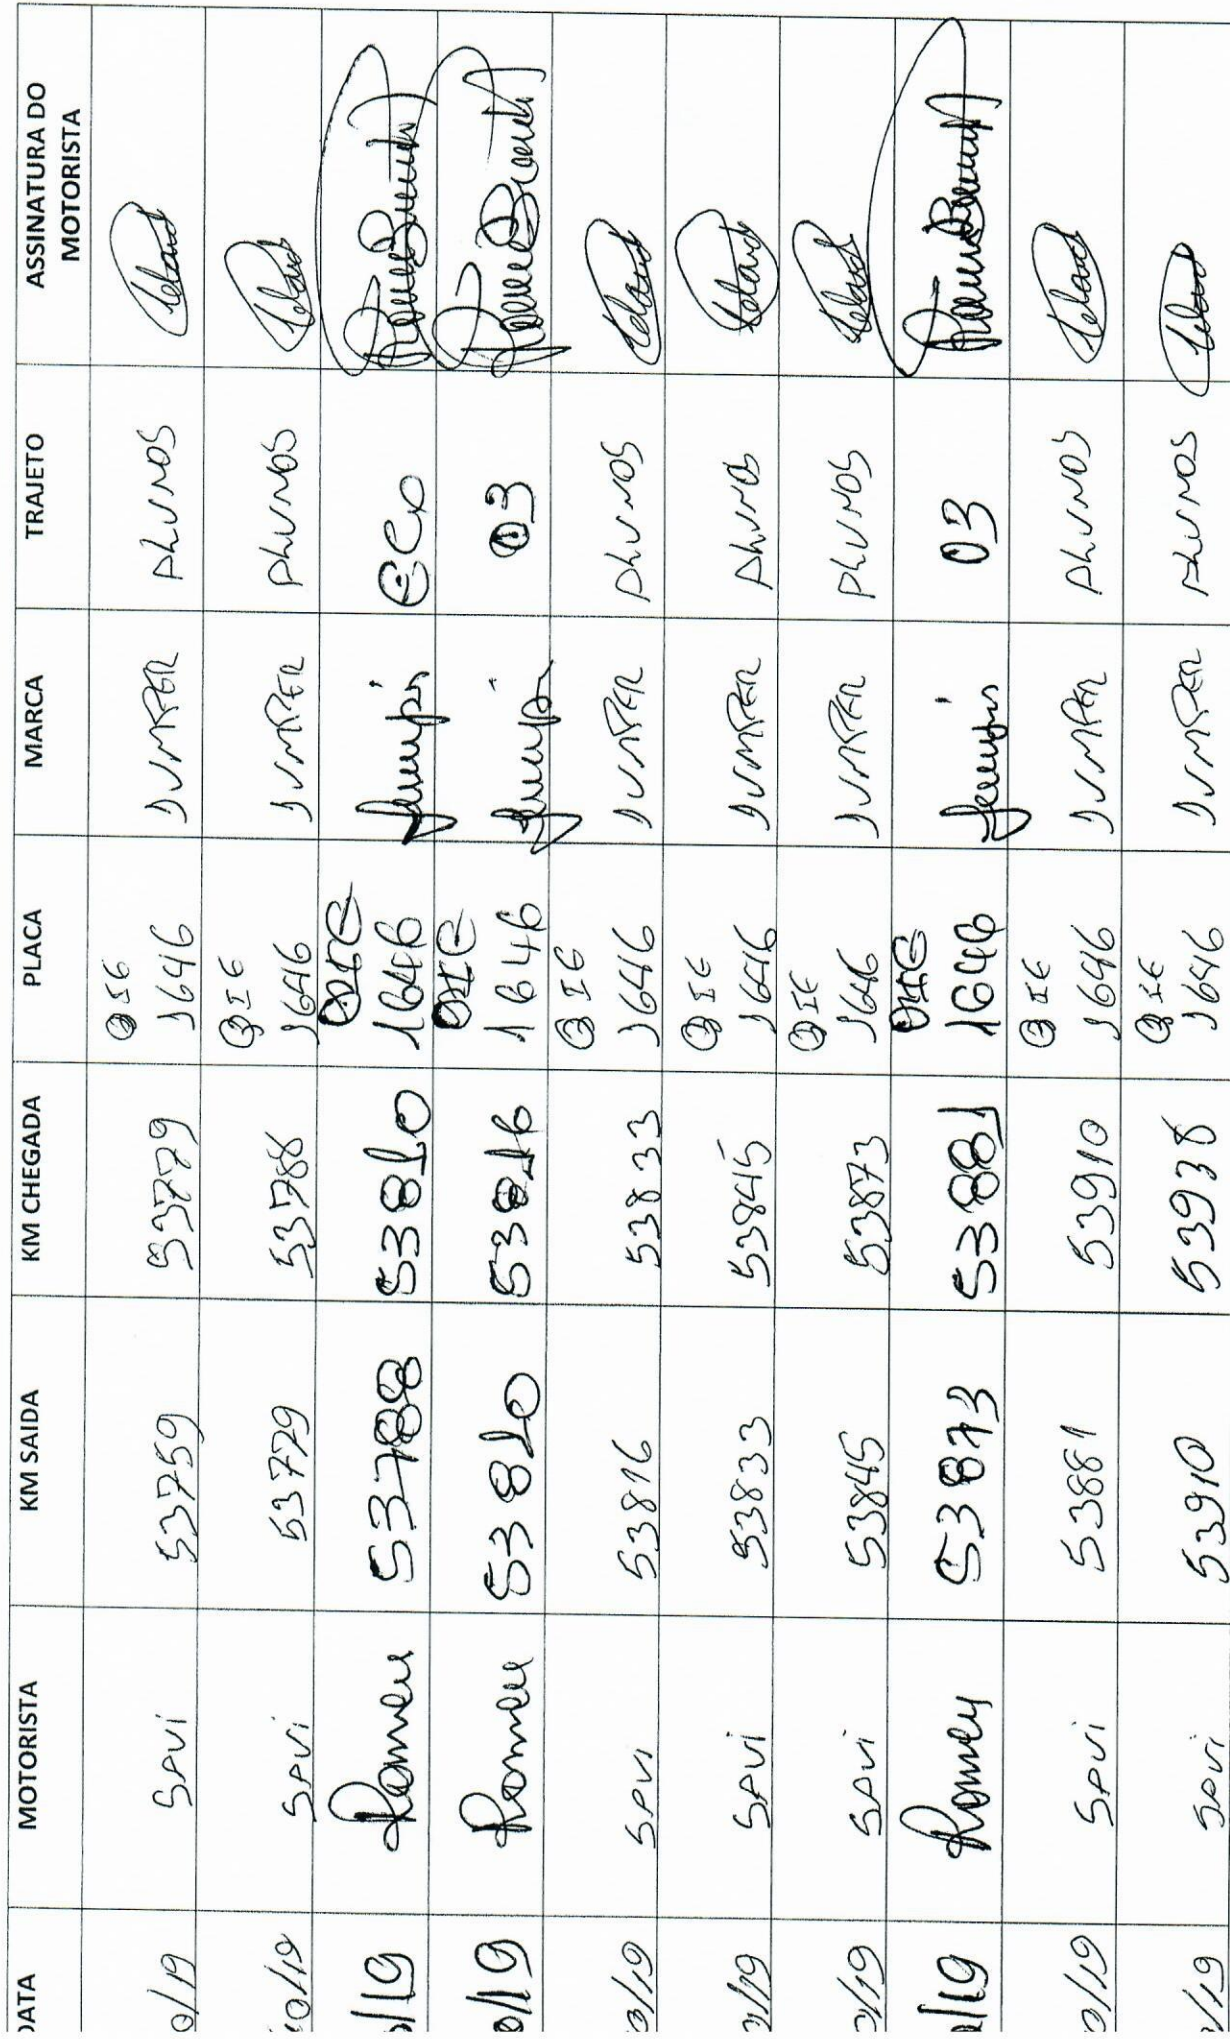 DATA MOTORISTA KM SAIDA KM CHEGADA PLACA MARCA TRAJETO ASSINATURA DO MOTORISTA
0/19 SAVI 53759 53779 QIG 1646 JUMPER ALUNOS
10/19 SAVI 53779 53788 QIG 1646 JUMPER ALUNOS
0/19 Romeu 53788 53810 QIG 1646 Jumper
0/19 Romeu 53810 53816 QIG 1646 Jumper 03
0/19 SAVI 53816 53833 QIG 1646 JUMPER ALUNOS
0/19 SAVI 53833 53845 QIG 1646 JUMPER ALUNOS
0/19 SAVI 53845 53873 QIG 1646 JUMPER ALUNOS
0/19 Romeu 53873 53881 QIG 1646 Jumper 03
0/19 SAVI 53881 53910 QIG 1646 JUMPER ALUNOS
0/19 SAVI 53910 53938 QIG 1646 JUMPER ALUNOS